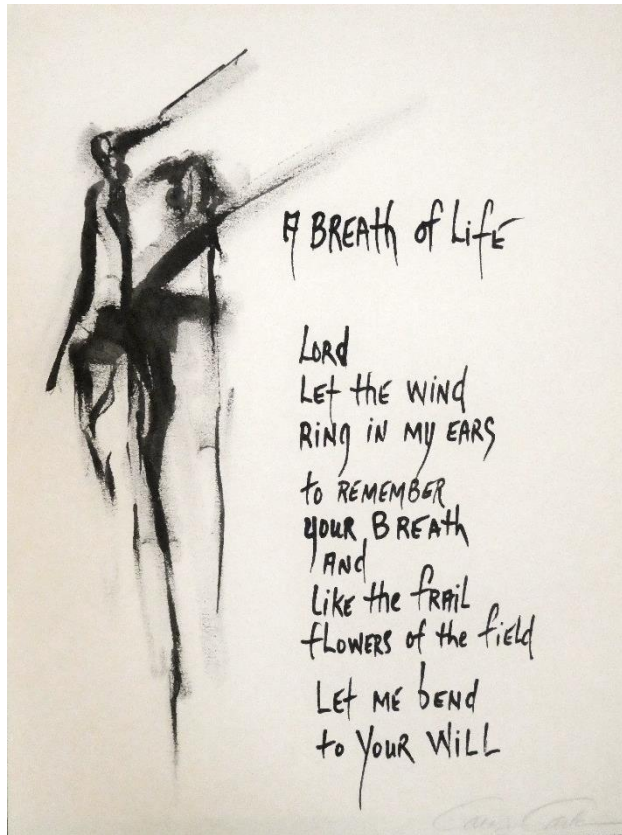 A BREATH of LifE
LORd
LEt tHE WiNd
RiNg iN MY EARS
to REMEMBER
YOUR BREATH
ANd
LikE the fRAiL
fLOWERS of the fiELd
LEt ME bENd
to YOUR WiLL